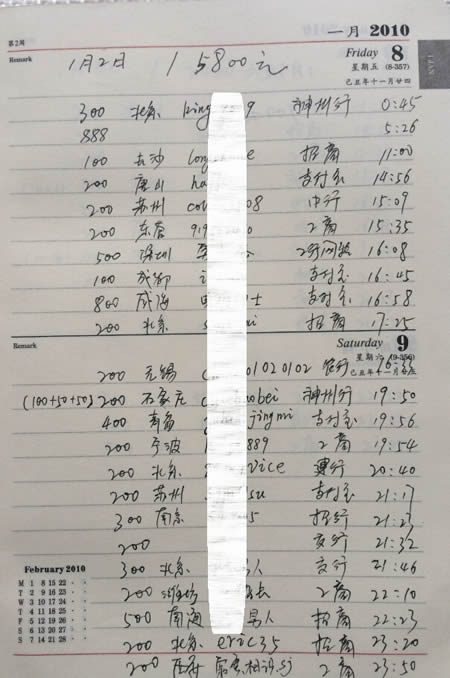 第2周 一月 2010
Remark Friday 8
星期五 (8-357)
己丑年十一月廿四
1月2日 15800元
300 北京 king 9 神州行 0:45
888 5:26
100 长沙 long 招商 11:00
200 唐山 ha 支付宝 14:56
200 苏州 co 08 中行 15:09
200 东莞 919 工商 15:35
500 深圳 16:08
100 成都 支付宝 16:45
800 威海 士 支付宝 16:58
200 北京 s i 招商 17:25
Remark Saturday 9
星期六 (9-356)
200 无锡 c 0102 0102 农行
(100+50+50) 200 石家庄 bei 神州行 19:50
400 青岛 jingmi 支付宝 19:56
200 宁波 889 工商 19:54
200 北京 vice 20:40
200 苏州 su 支付宝 21:17
300 南京 5 招行 21:23
200 21:32
300 北京 人 21:46
200 潍坊 长 工商 22:10
500 南海 男人 招商 22:23
200 北京 eric35 招商 23:20
200 工商 23:50
February 2010
M 1 8 15 22
T 2 9 16 23
W 3 10 17 24
T 4 11 18 25
F 5 12 19 26
S 6 13 20 27
S 7 14 21 28
JAN